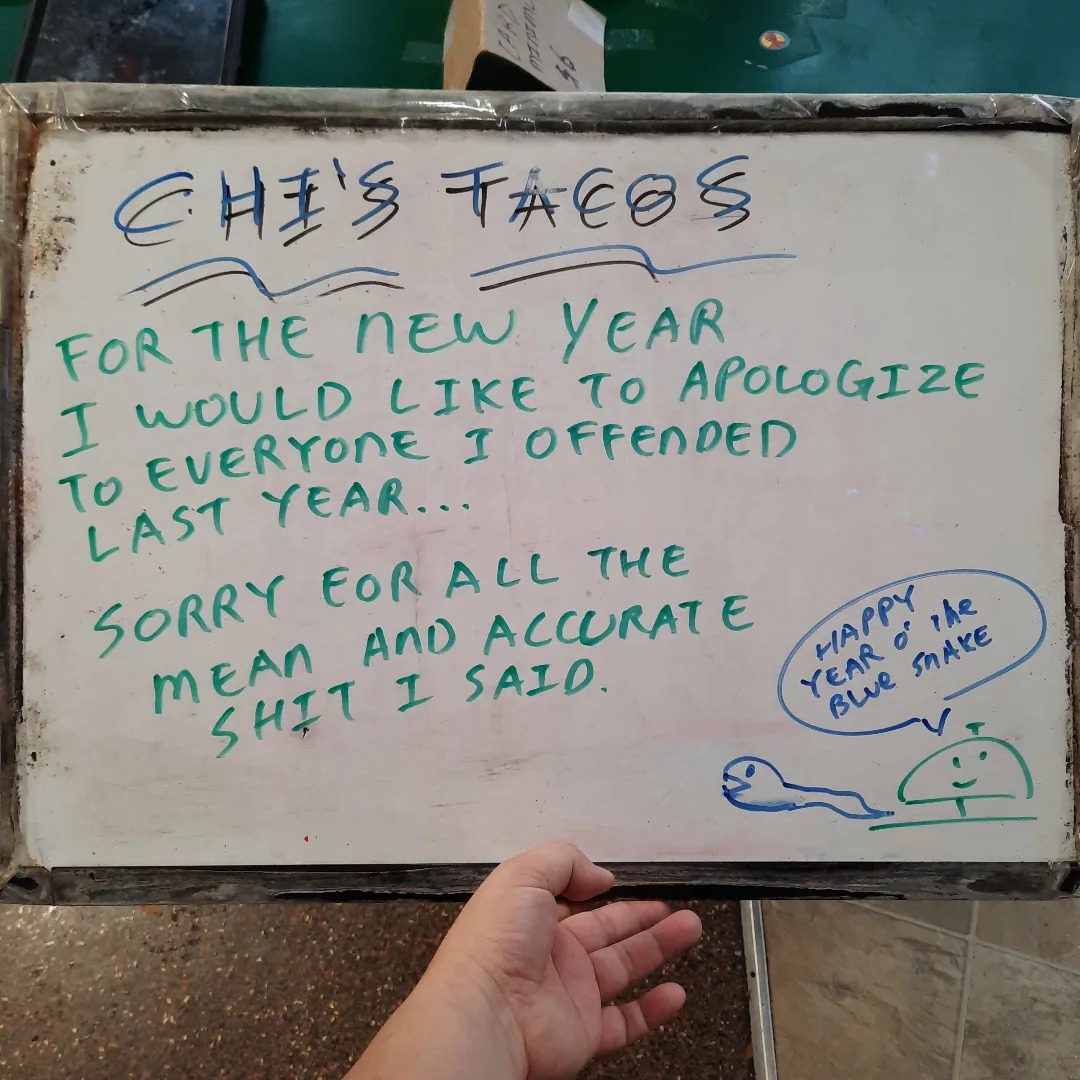 CARD
MINIMUM
$6
CHI'S TACOS
FOR THE NEW YEAR
I WOULD LIKE TO APOLOGIZE
TO EVERYONE I OFFENDED
LAST YEAR...
SORRY FOR ALL THE
MEAN AND ACCURATE
SHIT I SAID.
HAPPY
YEAR O' The
BLUE SNAKE